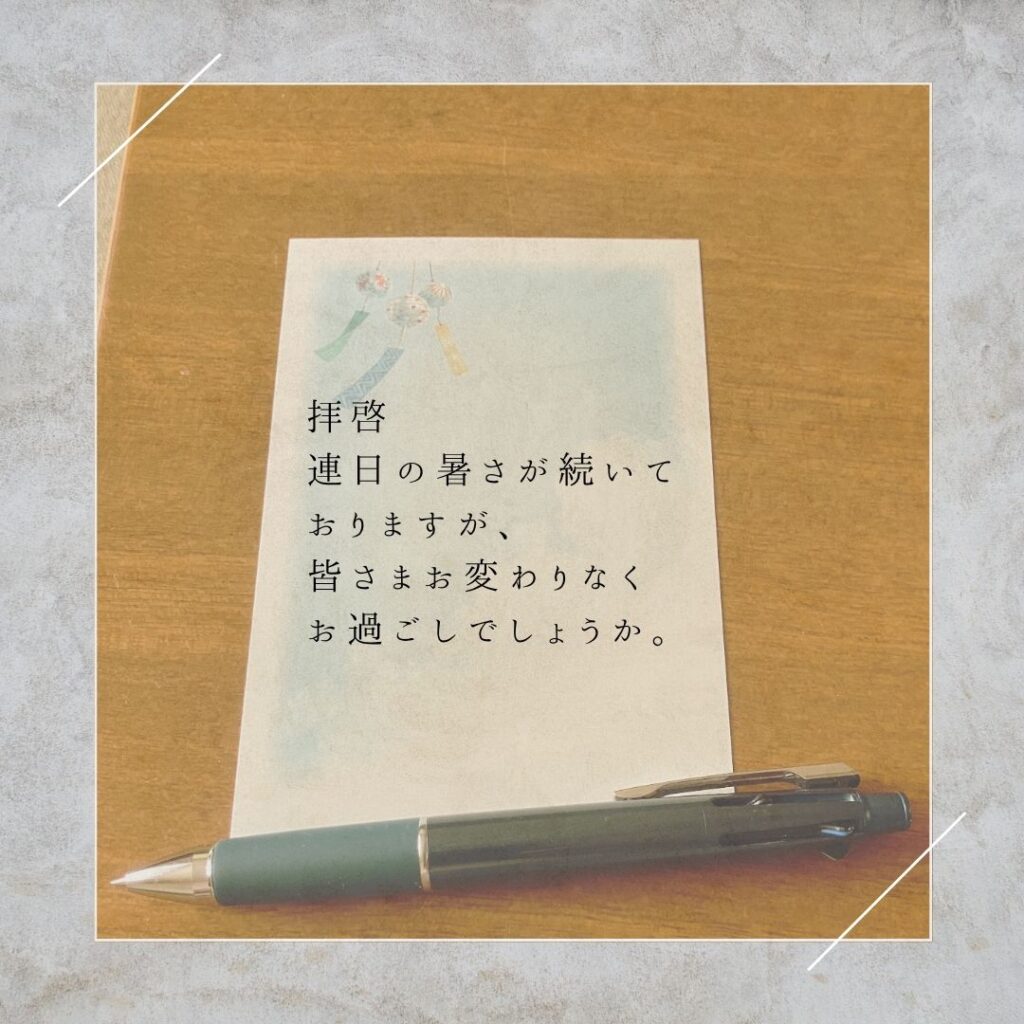 拝啓
連日の暑さが続いて
おりますが、
皆さまお変わりなく
お過ごしでしょうか。